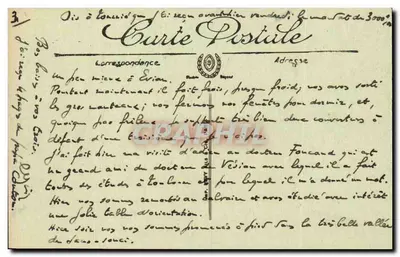 3
Dis à qu'j'ai reçu avant hier vendredi le mandat de 3000 f
Carte Postale
Correspondance
Adresse
un peu mieux à Evian.
Pourtant maintenant il fait froid, presque froid; nos avons sorti
les gros manteaux; nous fermons nos fenêtres pour dormir, et,
quoique pas frileux, je supporte très bien deux couvertures à
défaut d'une troisième que je n'ai pas.
J'ai fait hier une visite d'adieu au docteur Foucaud qui est
un grand ami du docteur de Vésian avec lequel il a fait
toutes ses études à Toulouse et pour lequel il m'a donné un mot.
Hier nous sommes remontés au calvaire et avons étudié avec intérêt
une jolie table d'orientation.
Hier soir nous nous sommes promenés à pied dans la très belle vallée
de sans-souci.
Bons baisers à vos trois
J'ai reçu
cartepostale